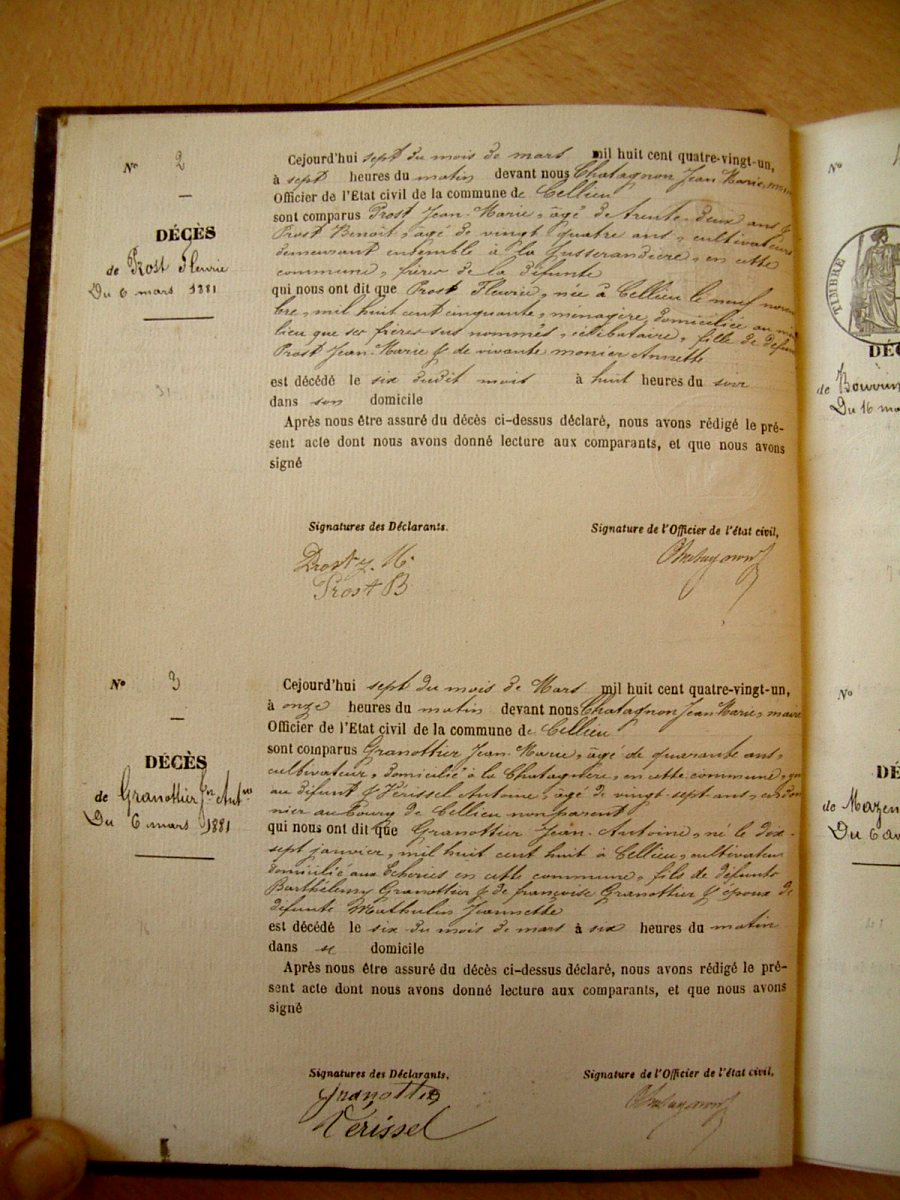 No 2
DÉCÈS
de Prost Fleurie
Du 6 mars 1881
31
Cejourd'hui sept du mois de mars mil huit cent quatre-vingt-un,
à sept heures du matin devant nous Chatagnon Jean Marie,
Officier de l'Etat civil de la commune de Cellieu
sont comparus Prost Jean-Marie, âgé de trente-deux ans &
Prost Benoit, âgé de vingt quatre ans, cultivateurs
demeurant ensemble à la Jusserandière, en cette
commune, frères de la défunte
qui nous ont dit que Prost Fleurie, née à Cellieu le neuf novem
bre, mil huit cent cinquante, ménagère, domiciliée au même
lieu que ses frères sus nommés, célibataire, fille de défunt
Prost Jean-Marie & de vivante monier Annette
est décédé le six dudit mois à huit heures du soir
dans son domicile
Après nous être assuré du décès ci-dessus déclaré, nous avons rédigé le pré-
sent acte dont nous avons donné lecture aux comparants, et que nous avons
signé
Signatures des Déclarants.
Signature de l'Officier de l'état civil,
Prost J. M.
Prost B
Chatagnon
No 3
DÉCÈS
de Granottier Jn Antne
Du 6 mars 1881
Cejourd'hui sept du mois de Mars mil huit cent quatre-vingt-un,
à onze heures du matin devant nous Chatagnon Jean Marie, maire
Officier de l'Etat civil de la commune de Cellieu
sont comparus Granottier Jean-Marie, âgé de quarante ans,
cultivateur, domicilié à la Chatagnère, en cette commune,
au défunt & Vérissel Antoine, âgé de vingt-sept ans,
nier au Bourg de Cellieu non parent
qui nous ont dit que Granottier Jean-Antoine, né le dix-
sept janvier, mil huit cent huit à Cellieu, cultivateur
domicilié aux Echories en cette commune, fils de défunts
Barthélemy Granottier & de françoise Granottier & époux de
défunte Jeannette
est décédé le six du mois de mars à six heures du matin
dans se domicile
Après nous être assuré du décès ci-dessus déclaré, nous avons rédigé le pré-
sent acte dont nous avons donné lecture aux comparants, et que nous avons
signé
Signatures des Déclarants.
Signature de l'Officier de l'état civil,
Granottier
Vérissel
Chatagnon
No
TIMBRE
DÉC
de
Du 16 ma
No
DÉ
de Mazen
Du 6 av